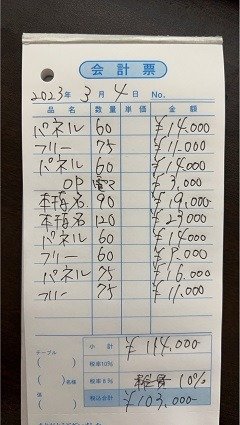 会計票
2023年 3月 4日 No.
品名 数量 単価 金額
パネル 60 ¥14.000
フリー 75 ¥11.000
パネル 60 ¥14.000
OP 電マ ¥3.000
本指名 90 ¥19.000
本指名 120 ¥23.000
パネル 60 ¥14.000
フリー 60 ¥9.000
パネル 75 ¥16.000
フリー 75 ¥11.000
テーブル 小計 ¥114.000
( ) 税率10%
( )名様 税率8% 雑費 10%
係
( ) 税込合計 ¥103.000-